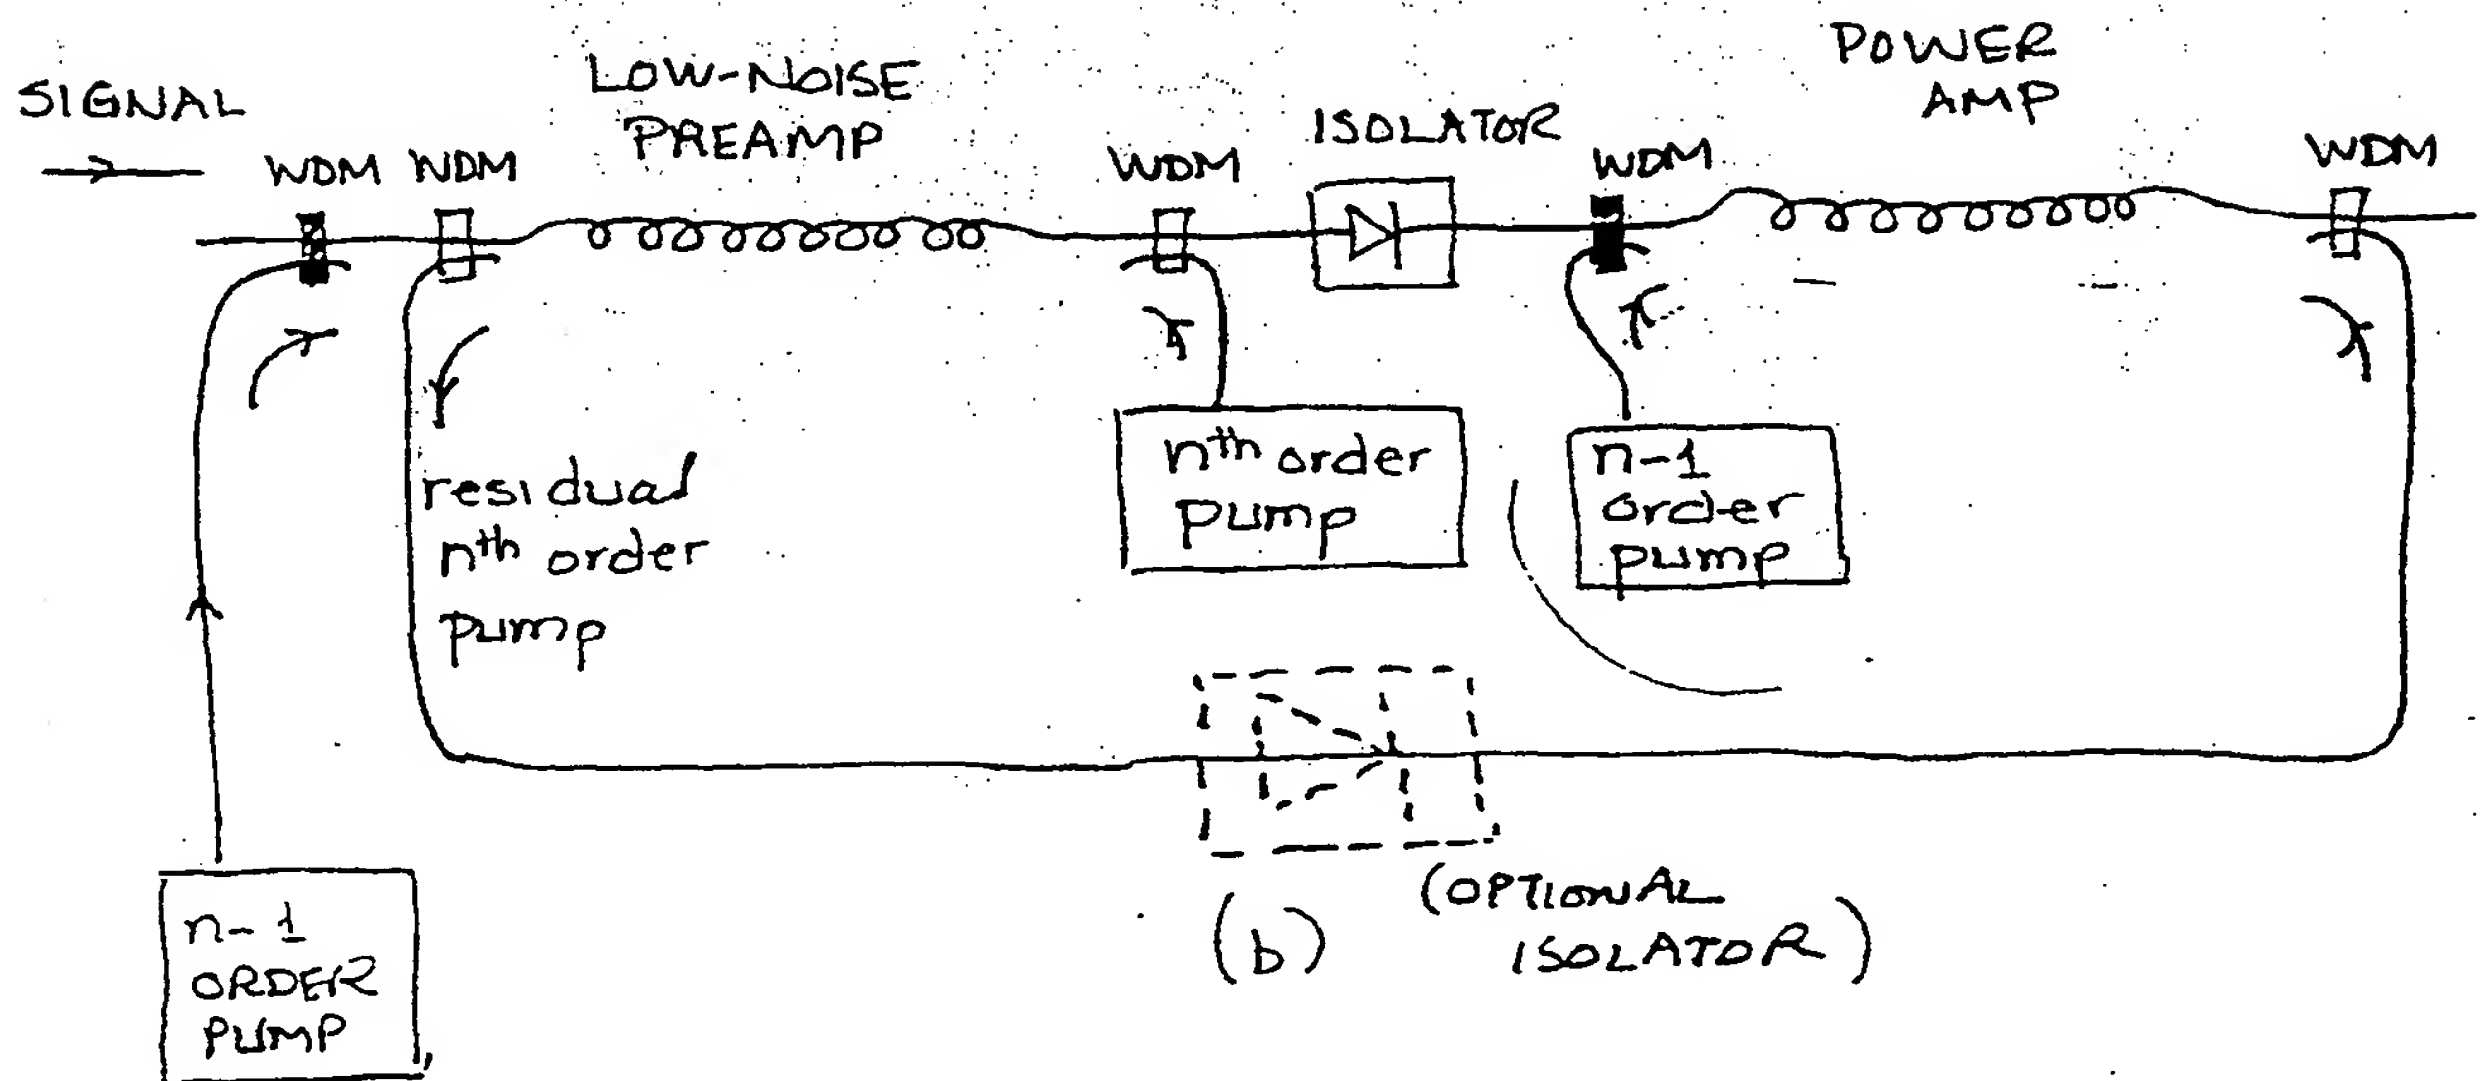 SIGNAL
LOW-NOISE
PREAMP
POWER
AMP
ISOLATOR
WDM
WDM
WDM
WDM
WDM
residual
nth order
pump
nth order
pump
n-1
order
pump
n-1
ORDER
PUMP
(b)
(OPTIONAL
ISOLATOR)